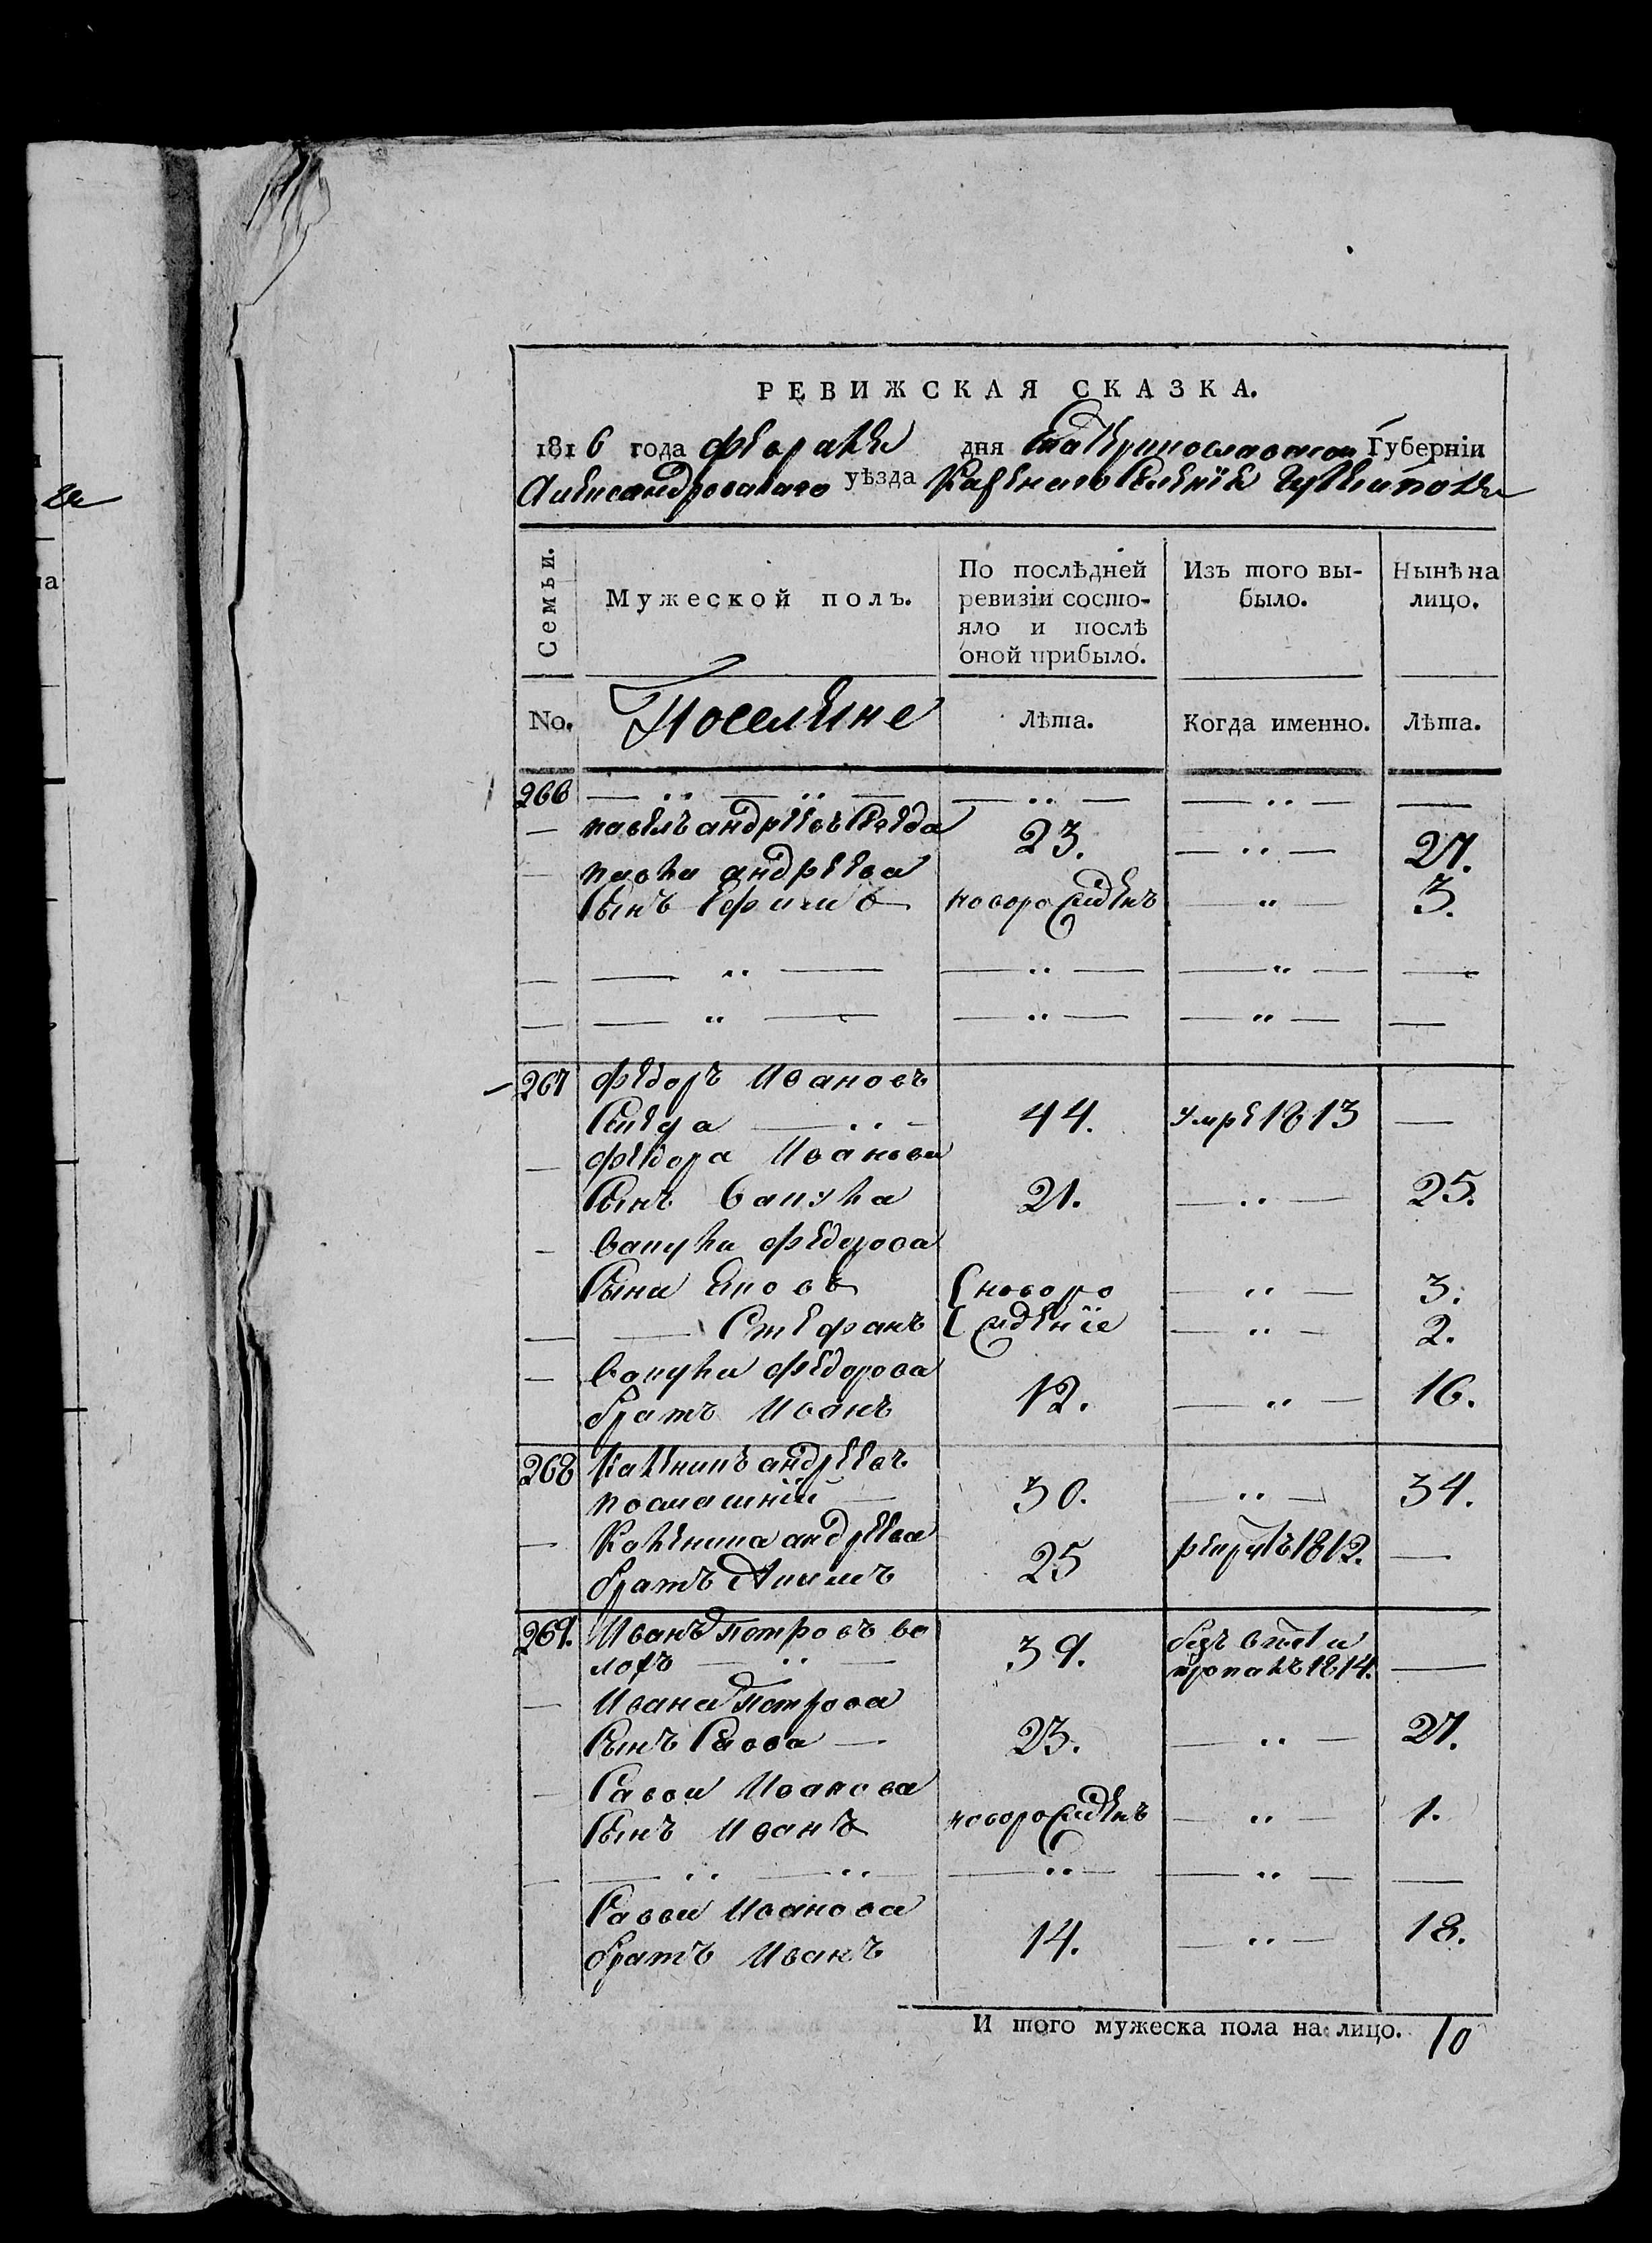 РЕВИЖСКАЯ СКАЗКА.
1816 года февраля дня Екатеринославской Губерніи
Александровскаго уѣзда Казеннаго Селенія
Семьи.
Мужеской полъ.
По послѣдней ревизіи состояло и послѣ оной прибыло.
Изъ того выбыло.
Нынѣ на лицо.
No.
Поселяне
Лѣта.
Когда именно.
Лѣта.
266
павелъ андреевъ 23. 27.
павла андреева
сынъ Ефимъ новорожденъ 3.
267 федоръ Ивановъ
44. умре 1813
федора Иванова
сынъ вакула 21. 25.
вакулы федорова
сына Яковъ новоро 3.
Стефанъ жденіе 2.
вакулы федорова
братъ Иванъ 12. 16.
268 каленикъ андреевъ
30. 34.
каленика андреева
братъ Акимъ 25 рекрутъ 1812.
269. Иванъ петровъ во
лохъ 39. безъ вѣсти
пропалъ 1814.
Ивана петрова
сынъ Савва 23. 27.
Савви Иванова
сынъ Иванъ новорожденъ 1.
Савви Иванова
братъ Иванъ 14. 18.
И того мужеска пола на лицо. 10